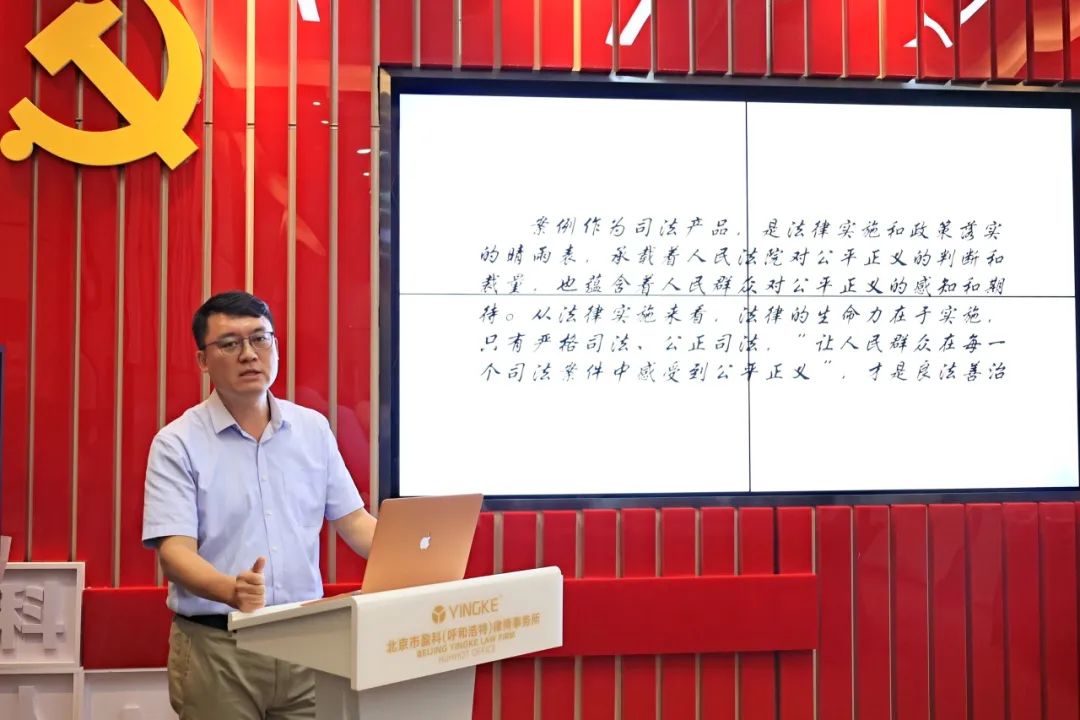 案例作为司法产品，是法律实施和政策落实
的晴雨表，承载着人民法院对公平正义的判断和
裁量，也蕴含着人民群众对公平正义的感知和期
待。从法律实施来看，法律的生命力在于实施，
只有严格司法、公正司法，“让人民群众在每一
个司法案件中感受到公平正义”，才是良法善治
YINGKE
北京市盈科（呼和浩特）律师事务所
BEIJING YINGKE LAW FIRM
HUHHOT OFFICE
科